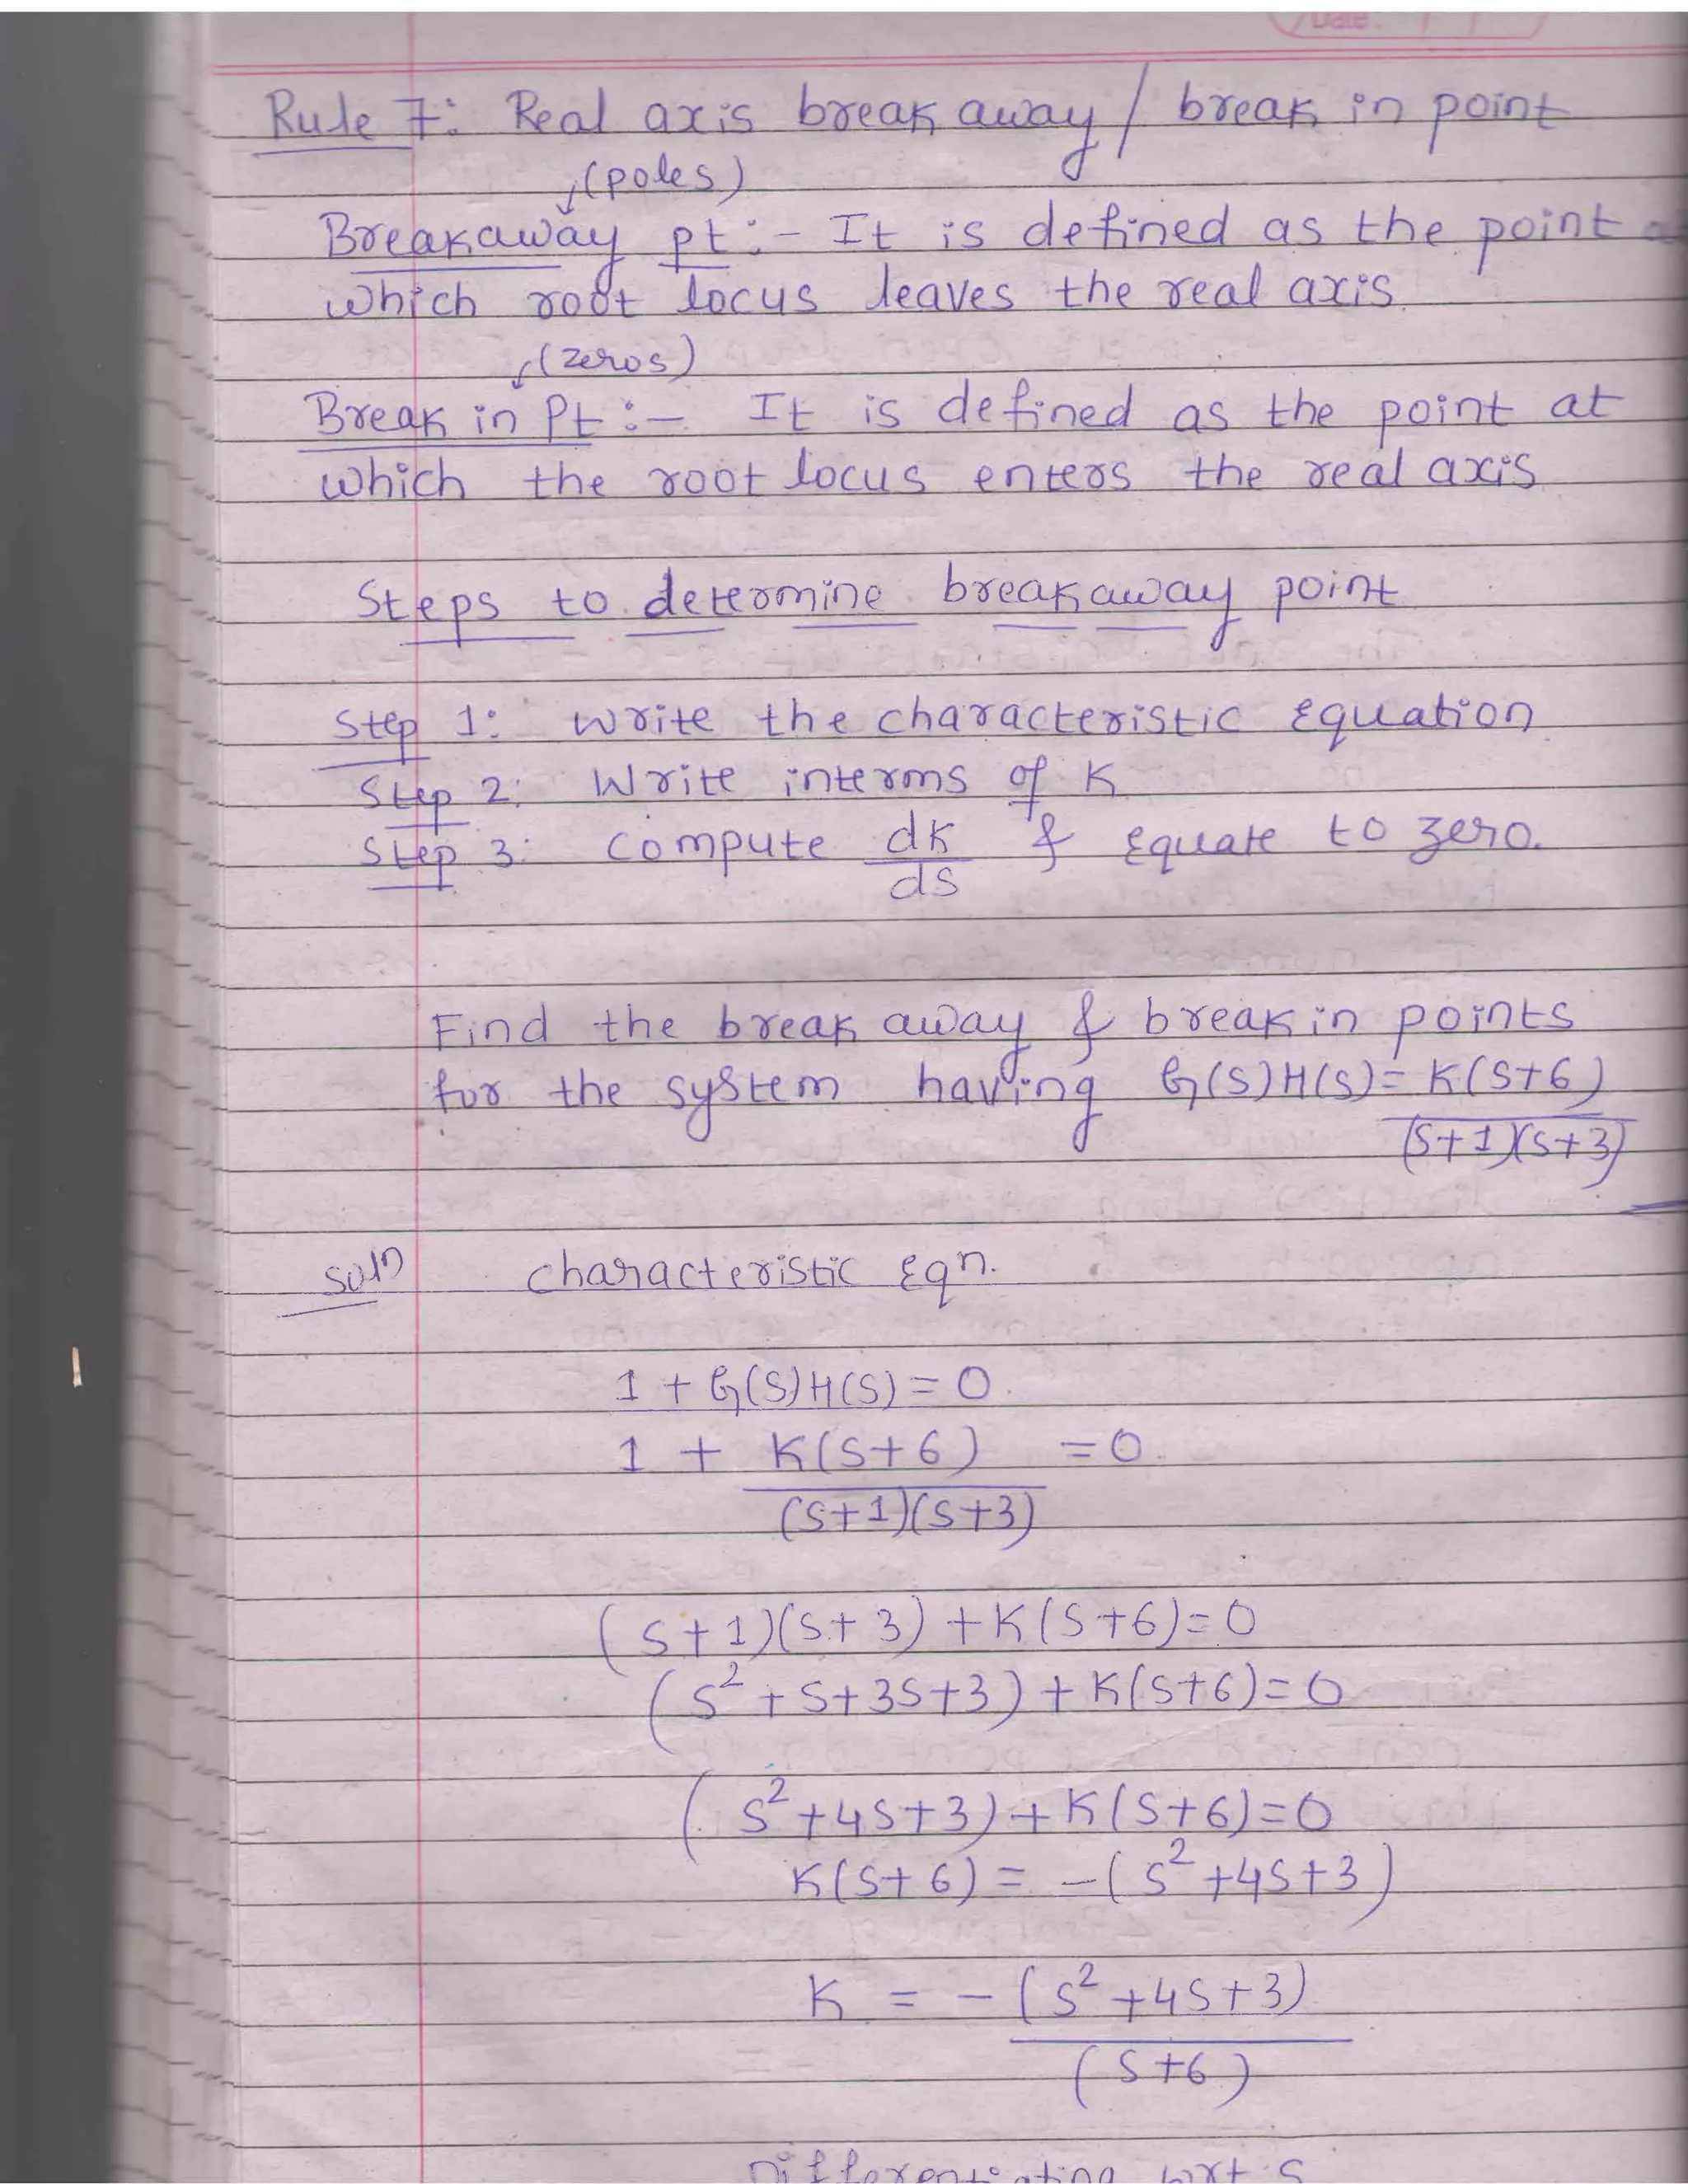 Date :
Rule 7: Real axis break away / break in point
(poles)
Breakaway pt :- It is defined as the point
which root locus leaves the real axis
(zeros)
Break in Pt :- It is defined as the point at
which the root locus enters the real axis
Steps to determine breakaway point
Step 1: Write the characteristic Equation
Step 2: Write interms of K
Step 3: Compute dK/ds & Equate to zero.
Find the break away & break in points
for the system having G(S)H(S)= K(S+6)
(S+1)(S+3)
Soln characteristic Eqn.
1 + G(S)H(S) = 0
1 + K(S+6) = 0
(S+1)(S+3)
(S+1)(S+3) + K(S+6)=0
(S²+S+3S+3) + K(S+6)=0
(S²+4S+3) + K(S+6)=0
K(S+6) = -(S²+4S+3)
K = -(S²+4S+3)
(S+6)
Differentiating wrt S